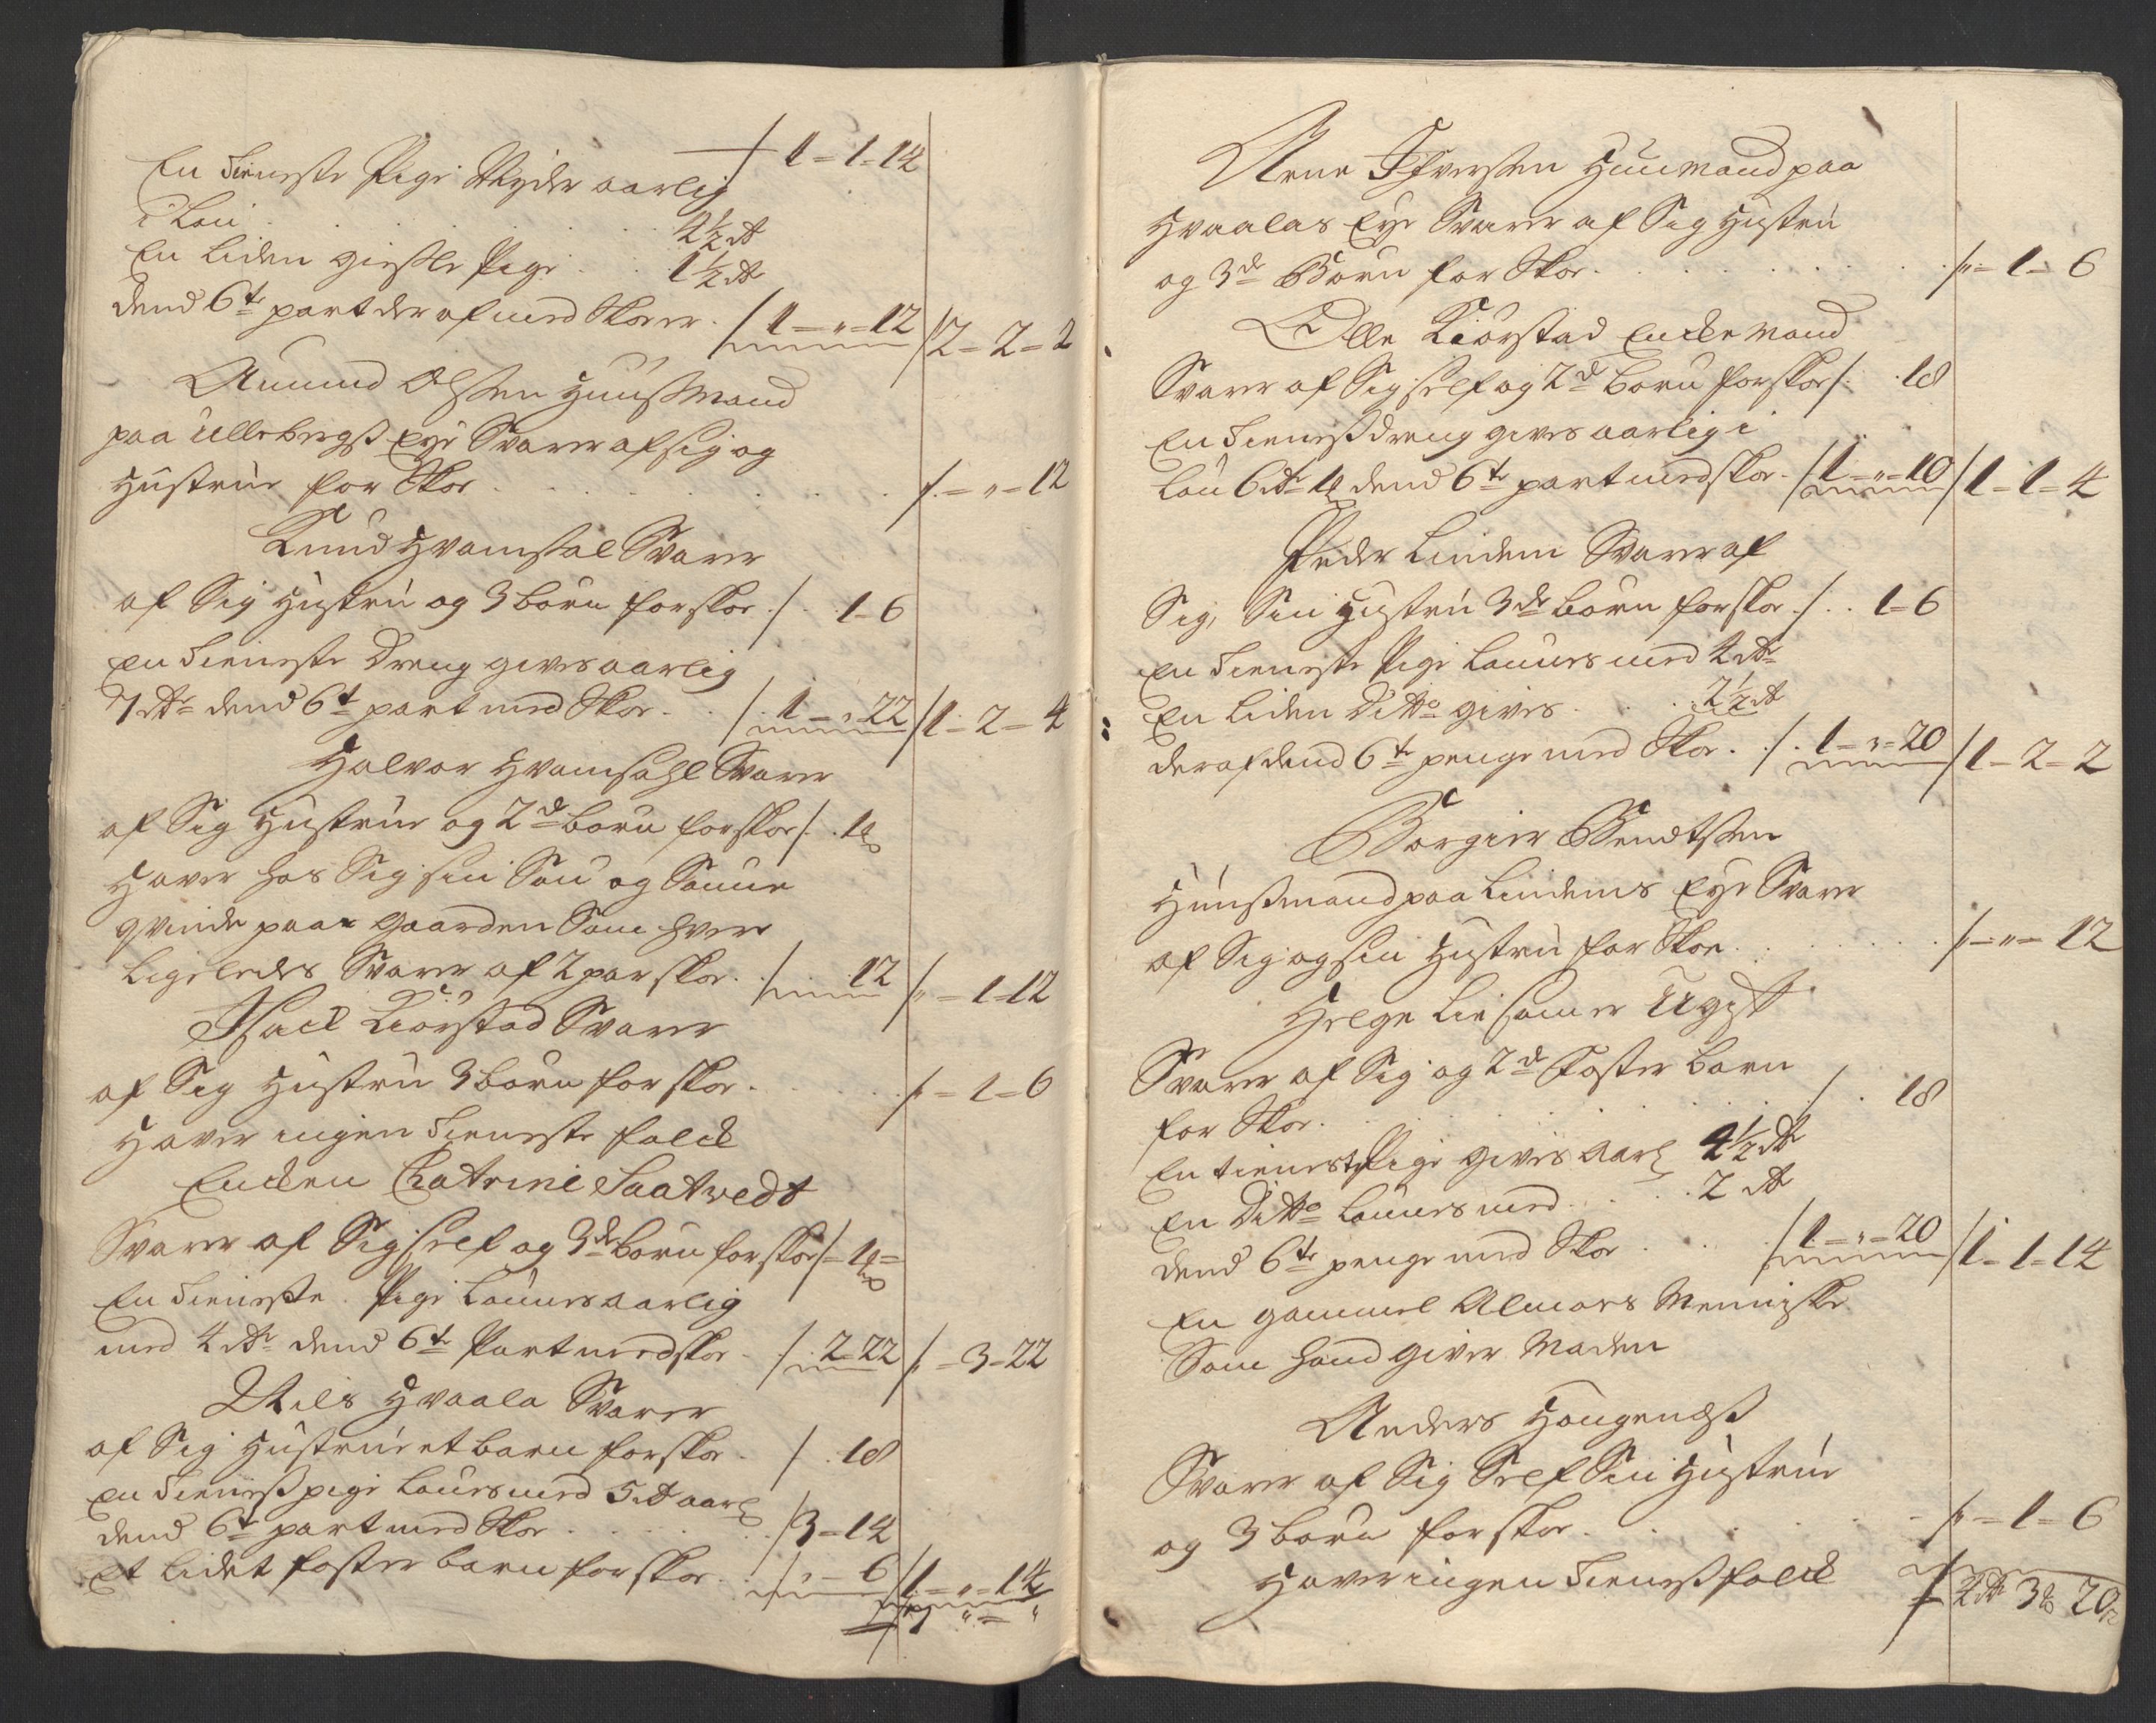 1 = 1 = 14
En Tieneste Pige Nyder aarlig
i Løn . . . . 4½ rdr
En liden giestle Pige . . 1½ rdr
dend 6te part der af med Skoer . 1 = „ = 12 / 2 = 2 = 2
Amund Olssen Huusmand
paa Ullebergs Eye Svarer af sig og
Hustrue for Skoe . . . - „ = 12
Knud Hvamsal Svarer
af Sig Hustru og 3 børn for skoe . 1 = 6
En Tieneste Dreng gives aarlig
7 rdr dend 6te part med Skoe . . 1 = „ 22 / 1 = 2 = 4
Halvor Hvamsahl Svarer
af Sig Hustrue og 2de børn for skoe . 1 ß
Haver hos Sig sin Søn og Sønne
qvinde paa Gaarden Som hver
Ligeledes Svarer af 2 par skoe . 12 / „ = 1 = 12
Isach Kiørstad Svarer
af Sig Hustru 3 børn for skoe . . „ = 1 = 6
Haver ingen Tieneste folck
Encken Chatrine Saatvedt
Svarer af Sig self og 3de børn for skoe 1 ß
En Tieneste Pige Lønnes aarlig
med 4 rdr dend 6te Part med skoe . 2 = 22 / - 3 = 22
Niels Hvaala Svarer
af Sig Hustrue et barn for skoe . 18
En Tienestpige Lønes med 5 rd aarl
dend 6te part med Skoe . . . 3 = 14
Et lidet foster barn for skoe . . „ = 6 / 1 = „ = 14
7 „ = „
Arne Ifversen Huusmand paa
Hvaalas Eye Svarer af Sig Hustru
og 3de Børn for Skoe . . . „ = 1 = 6
Olle Kiørstad Enckemand
Svarer af Sig self og 2de børn for skoe . 18
En Tienestdreng gives aarlig i
Løn 6 rdr 1 ß dend 6te part med skoe . 1 = „ = 10 / 1 = 1 = 4
Peder Lindem Svarer af
Sig, Sin Hustru 3de børn for skoe . . 1 = 6
En Tieneste Pige Lønnes med 4 rdr
En liden Ditto gives . . 2½ rd
deraf dend 6te penge med Skoe . . 1 = „ = 20 / 1 = 2 = 2
Børgier Bendtsen
Huusmand paa Lindems Eye Svarer
af Sig og sin Hustru for Skoe . . - „ = 12
Helge Lie som er Ugift
Svarer af Sig og 2de Foster børn
for Skoe . . . 18
En tienest Pige gives aarl 4½ rdr
En Ditto Lønnes med . . . 2 rd
dend 6te penge med Skoe . . 1 = „ = 20 / 1 = 1 = 14
En gammel Almoes Menniske
Som hand giver Maden
Anders Haugenæs
Svarer af Sig Self Sin Hustrue
og 3 børn for skoe . . . „ = 1 = 6
Haver ingen Tienest folck
4 rdr 3 ß 20